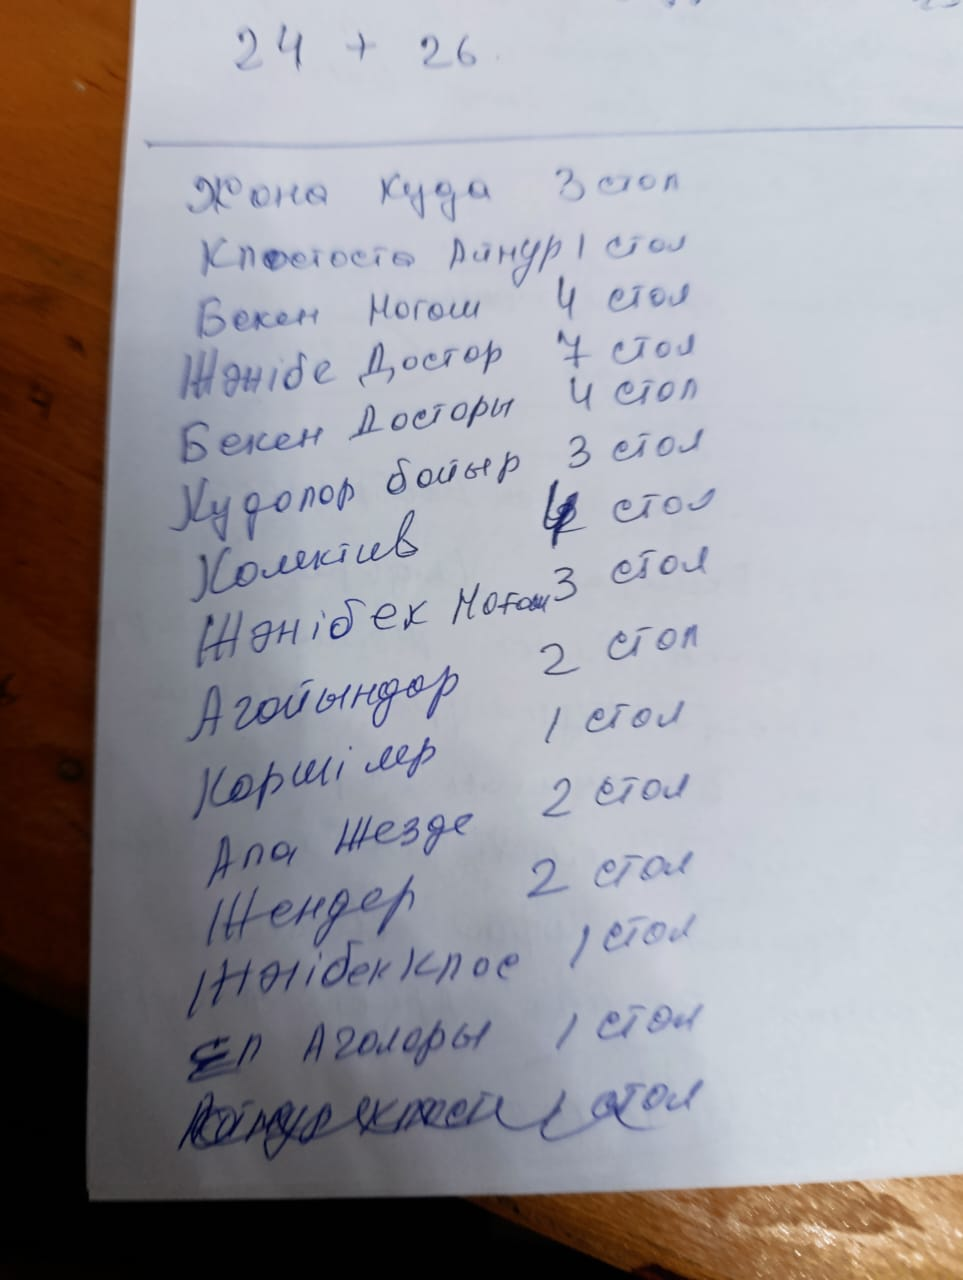 24 + 26
Жона Куда 3 стол
Клостосто Айнур 1 стол
Бекен Ногош 4 стол
Жәнібе Достор 7 стол
Бекен Досторы 4 стол
Кудолор бойыр 3 стол
Колектив стол
Жәнібек Ногош 3 стол
Агойындор 2 стол
Коршілер 1 стол
Апа Жезде 2 стол
Жендер 2 стол
Жәнібек Клос 1 стол
Ел Аголоры 1 стол
1 стол